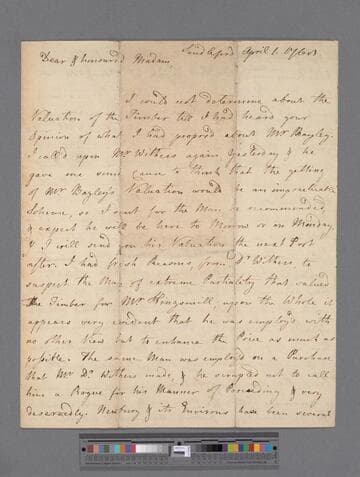 Sandleford April 1. 
Dear & honoured Madam
I could not determine about the
Valuation of the Timber till I had heard your
Opinion of what I had propos'd about Mr Bayley.
I call'd upon Mr Withers again Yesterday & he
gave me some Cause to think that the getting
of Mr Bayley's Valuation would be an impracticable
Scheme, so I sent for the Man he recommended,
& expect he will be here to Morrow or on Monday,
& I will send you his Valuation the next Post
after. I had fresh Reasons, from Dr Withers, to
suspect the Man of extreme Partiality that valued
the Timber for Mr Kingsmill upon the Whole it
appears very evident that he was employ'd with
no other View but to enhance the Price as much as
possible. The same Man was employ'd on a Purchase
that Mr Dr Withers made, & he scrupled not to call
him a Rogue for his Manner of Proceeding & very
deservedly. Newbury & its Environs have been several